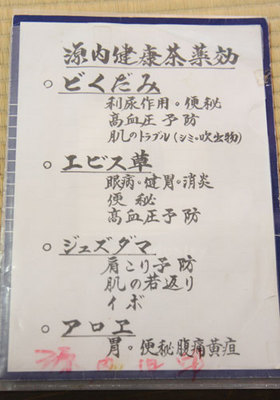 源内健康茶薬効
○どくだみ
利尿作用。便秘
高血圧予防
肌のトラブル(シミ・吹出物)
○エビス草
眼病・健胃・消炎
便秘
高血圧予防
○ジュズダマ
肩こり予防
肌の若返り
イボ
○アロエ
胃。便秘腹痛黄疸